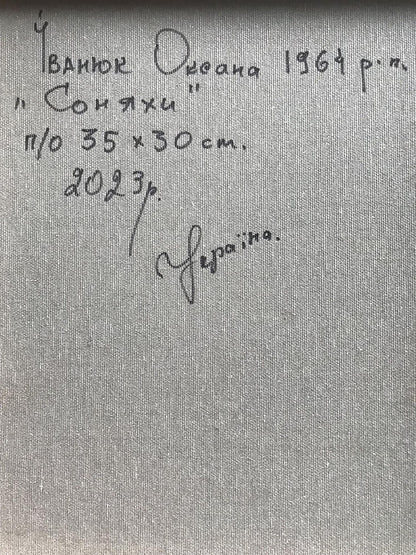 Іванюк Оксана 1964 р.н.
"Соняхи"
п/о 35 х 30 см.
2023р.
Україна.